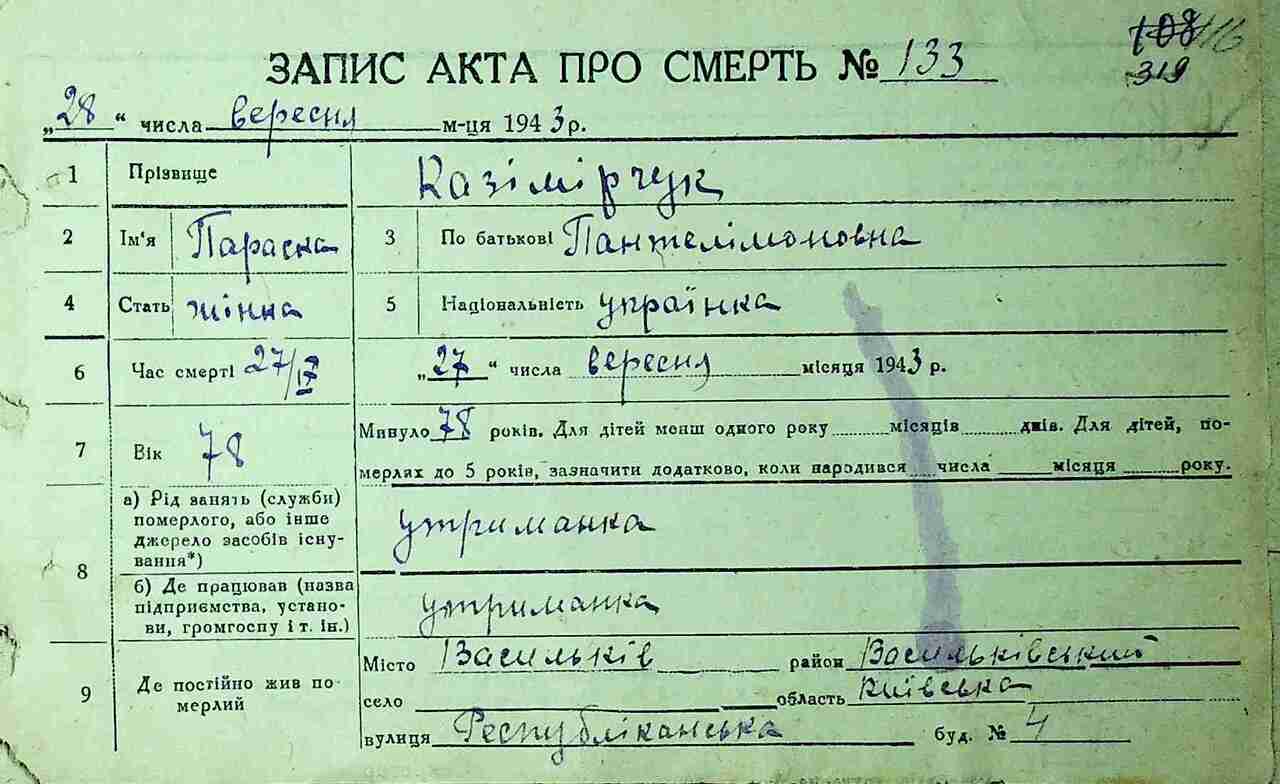 108 116
319
ЗАПИС АКТА ПРО СМЕРТЬ № 133
„28“ числа вересня м-ця 1943 р.
1 Прізвище Казімірчук
2 Ім'я Параска 3 По батькові Пантелімоновна
4 Стать жінка 5 Національність українка
6 Час смерті 27/IX „27“ числа вересня місяця 1943 р.
7 Вік 78 Минуло 78 років. Для дітей менш одного року місяців днів. Для дітей, по-
мерлях до 5 років, зазначити додатково, коли народився числа місяця року.
8 а) Рід занять (служби)
померлого, або інше
джерело засобів існу-
вання*)
утриманка
б) Де працював (назва
підприємства, устано-
ви, громгоспу і т. ін.)
утриманка
9 Де постійно жив по-
мерлий
Місто Васильків район Васильківський
село область Київська
вулиця Республіканська буд. № 4